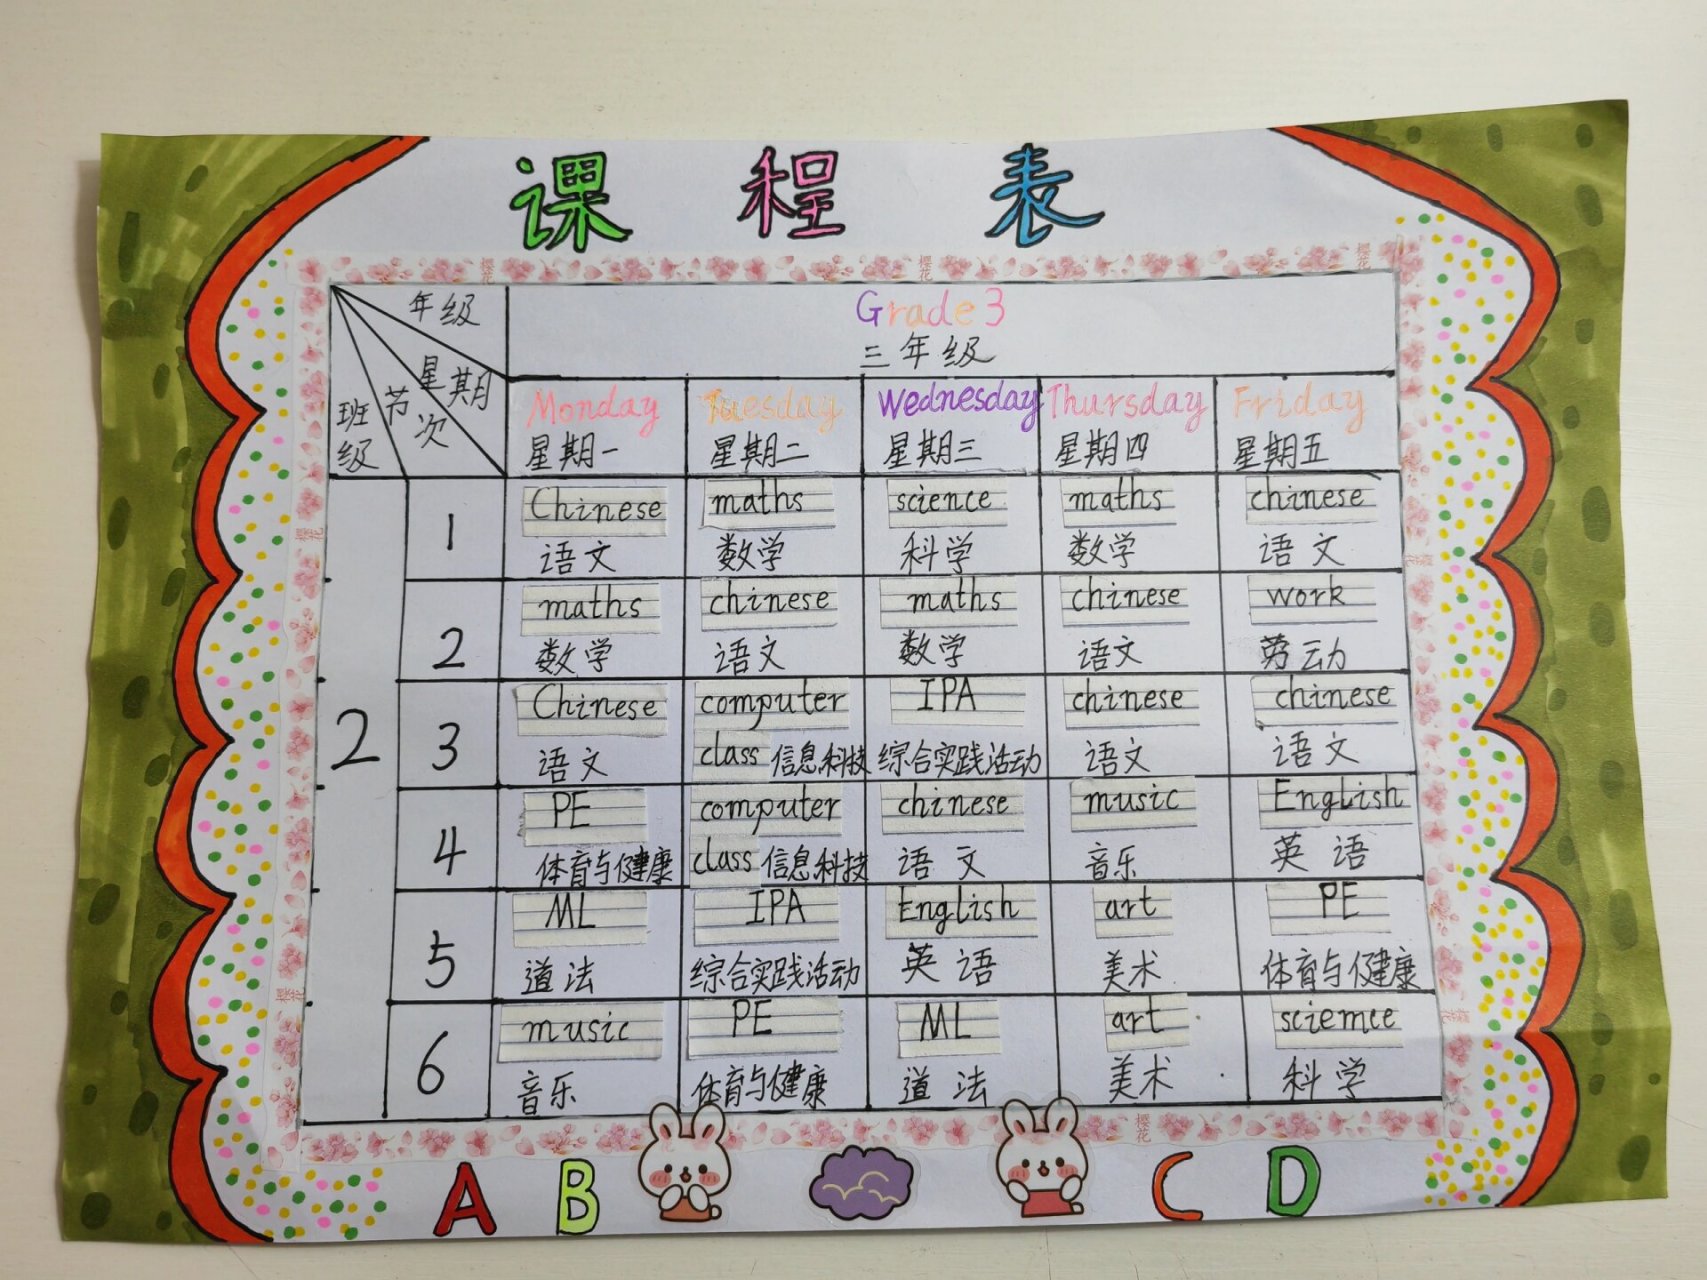 课程表
年级
星期
节次
班级
Grade 3
三年级
Monday Tuesday Wednesday Thursday Friday
星期一 星期二 星期三 星期四 星期五
2
1
Chinese maths science maths chinese
语文 数学 科学 数学 语文
2
maths chinese maths chinese work
数学 语文 数学 语文 劳动
3
Chinese computer IPA chinese chinese
语文 class 信息科技 综合实践活动 语文 语文
4
PE computer chinese music English
体育与健康 class 信息科技 语文 音乐 英语
5
ML IPA English art PE
道法 综合实践活动 英语 美术 体育与健康
6
music PE ML art sciemce
音乐 体育与健康 道法 美术 科学
A B C D
樱花